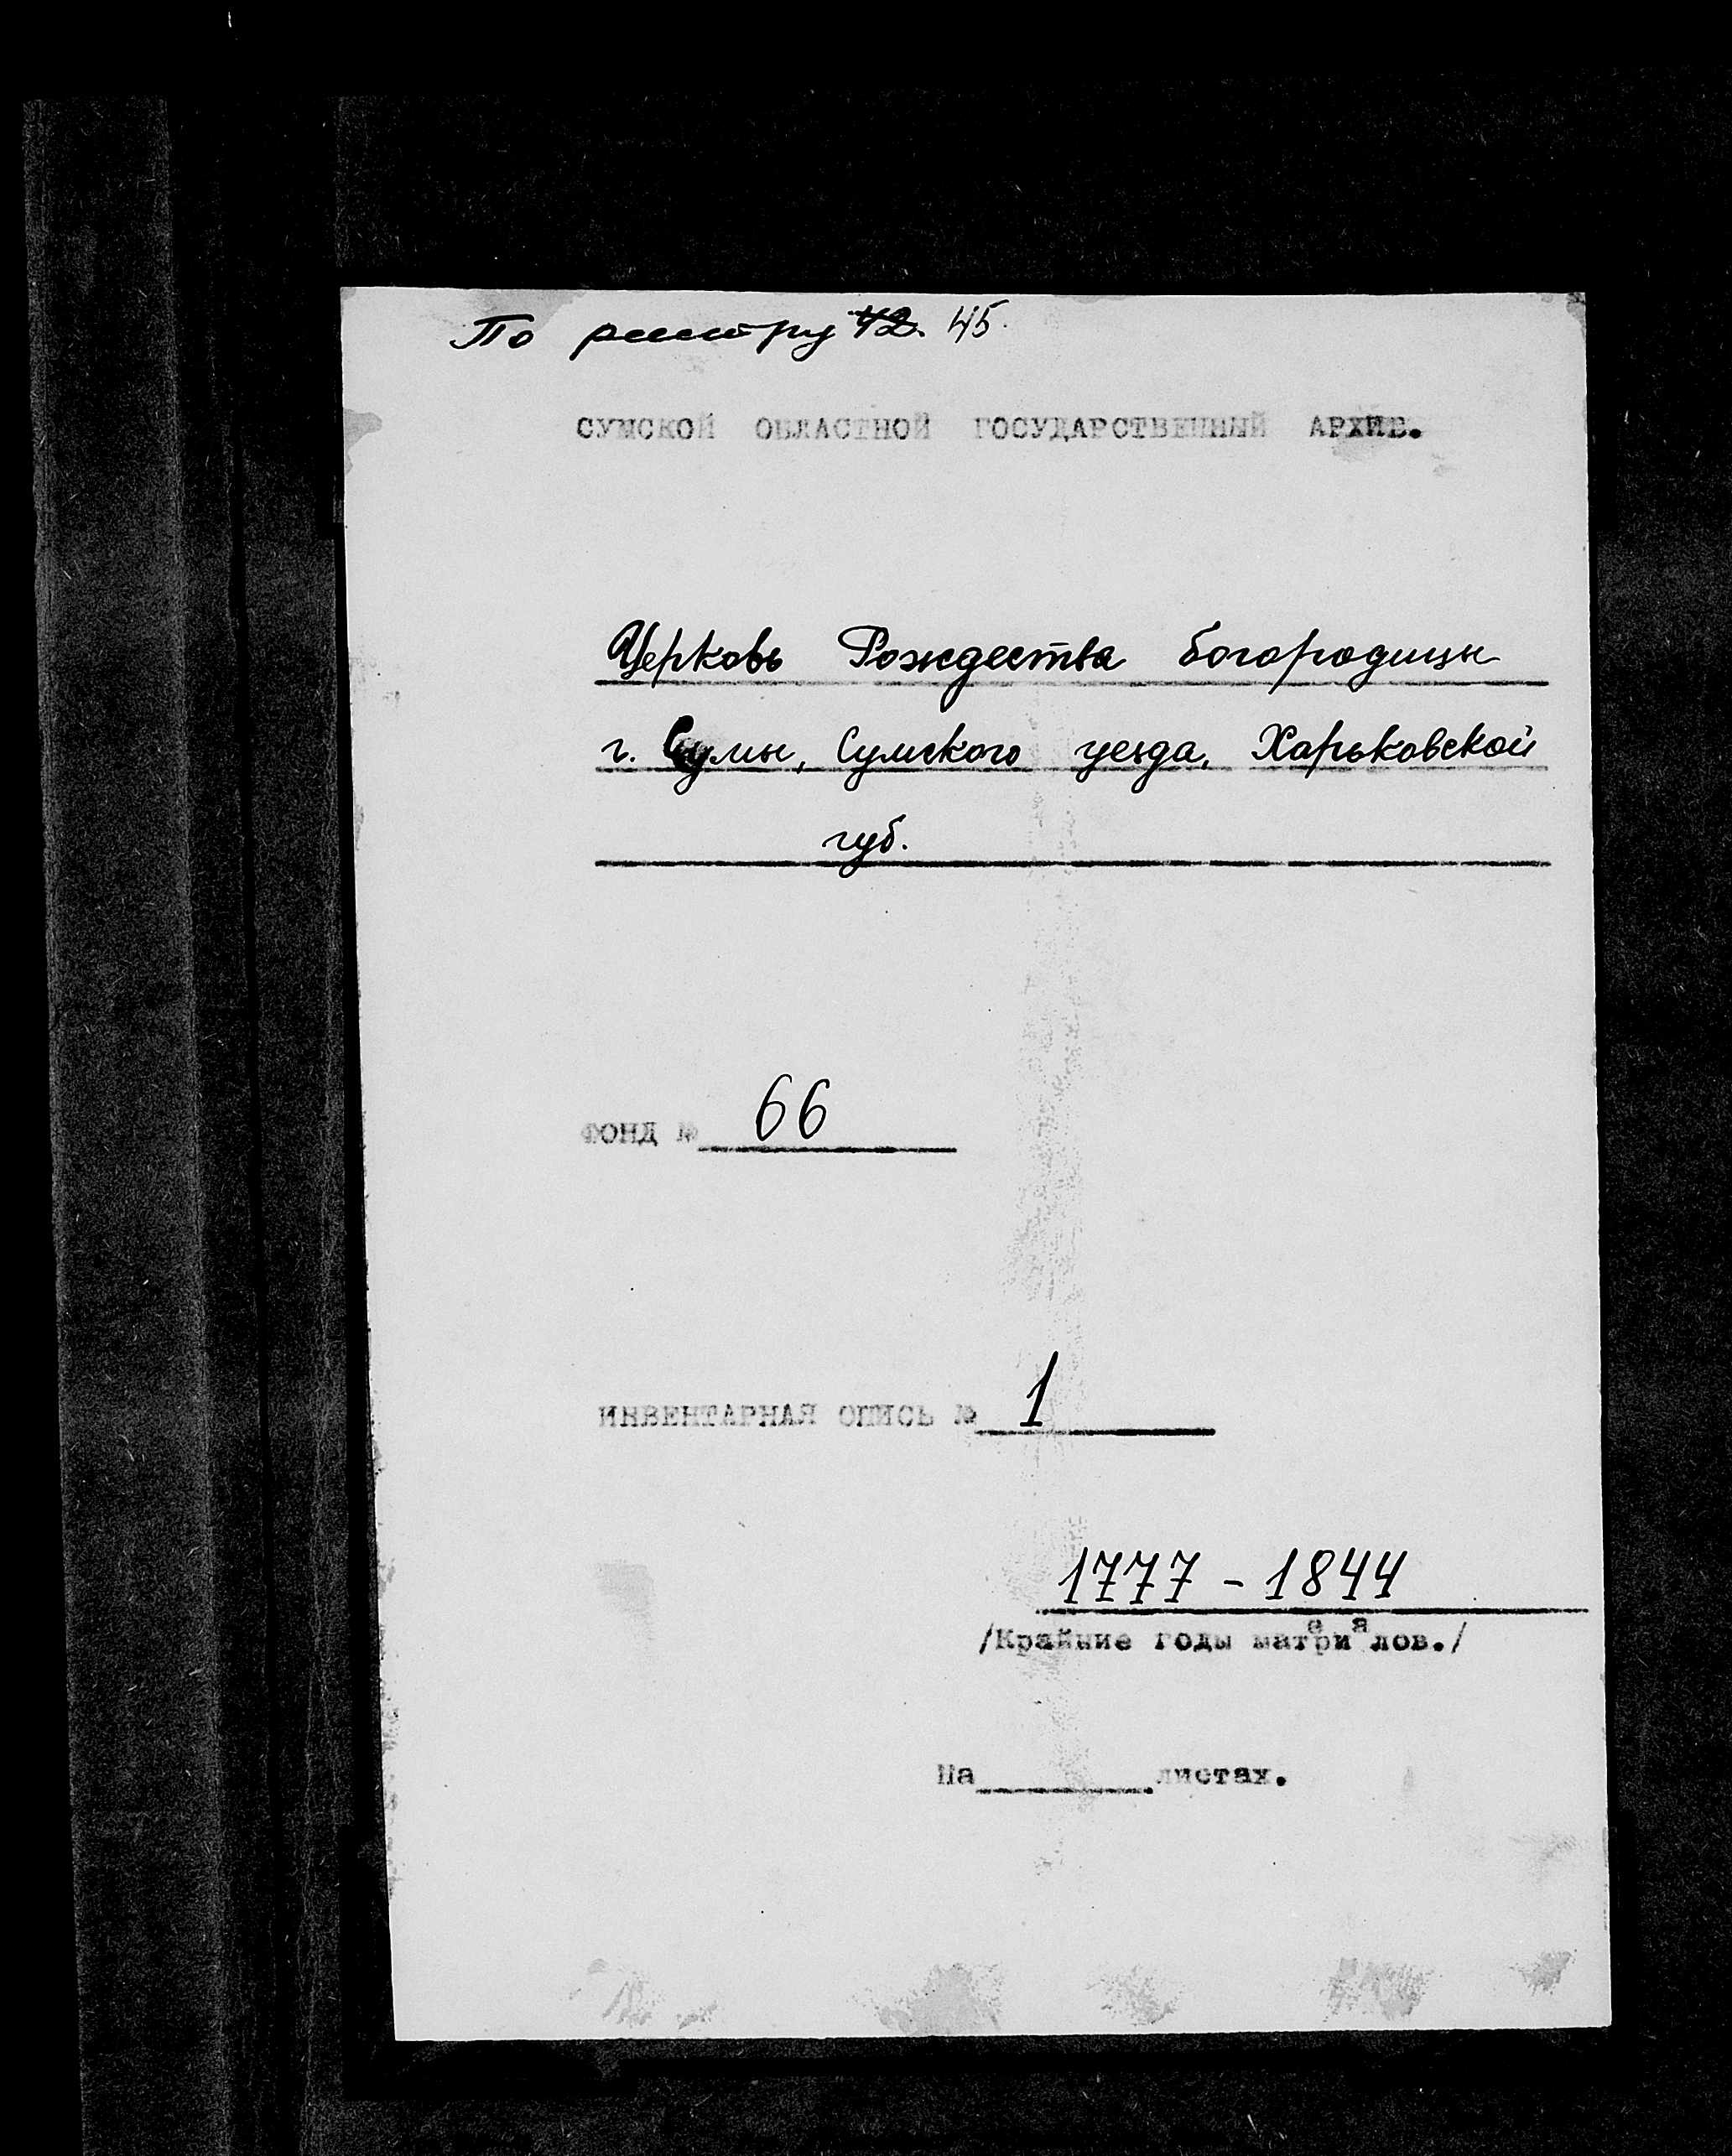 По реестру 42. 45.
СУМСКОЙ ОБЛАСТНОЙ ГОСУДАРСТВЕННЫЙ АРХИВ.
Церковь Рождества богородицы
г. Сумы, Сумского уезда, Харьковской
губ.
ФОНД № 66
ИНВЕНТАРНАЯ ОПИСЬ № 1
1777 - 1844
/Крайние годы материалов./
На листах.